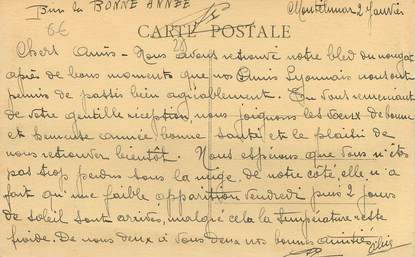 Pour la BONNE ANNÉE
Montélimar 2 Janvier
6€
CARTE POSTALE
Chers Amis - Nous avons retrouvé notre bled du nougat
après de bons moments que nos Amis Lyonnais nous ont
permis de passer bien agréablement. En vous remerciant
de votre gentille réception, nous joignons les vœux de bonne
et heureuse année, bonne santé et le plaisir de
nous retrouver bientôt. Nous espérons que vous n'êtes
pas trop perdus sous la neige, de notre côté, elle n'a
fait qu'une faible apparition vendredi puis 2 jours
de soleil sont arrivés, malgré cela la température reste
froide. De nous deux à vous deux nos bonnes amitiés